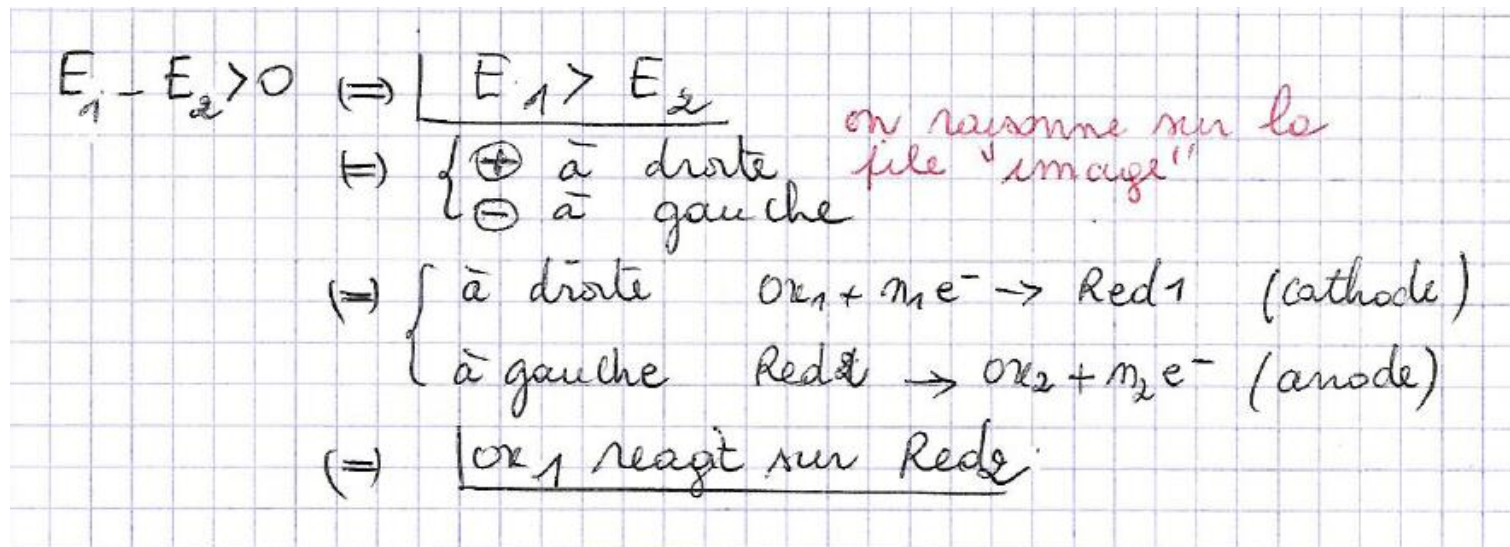 E₁ - E₂ > 0 (=) E₁ > E₂
on raisonne sur la
(=) { ⊕ à droite
pile "image"
⊖ à gauche
(=) { à droite ox₁ + n₁e⁻ -> Red1 (cathode)
à gauche Red2 -> ox₂ + n₂e⁻ (anode)
(=) ox₁ reagit sur Red₂